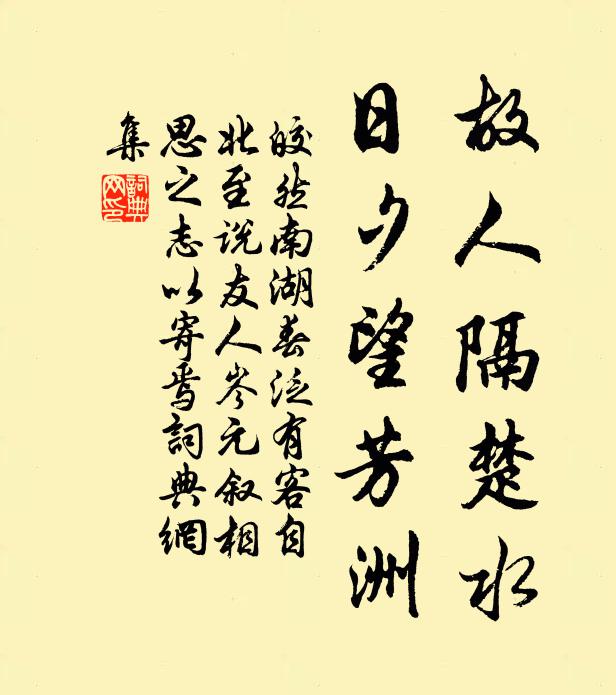 故人隔楚水
日夕望芳洲
皎然南湖春泛有客自
北至说友人岑元叙相
思之志以寄焉詞典網
集
詞典
网印